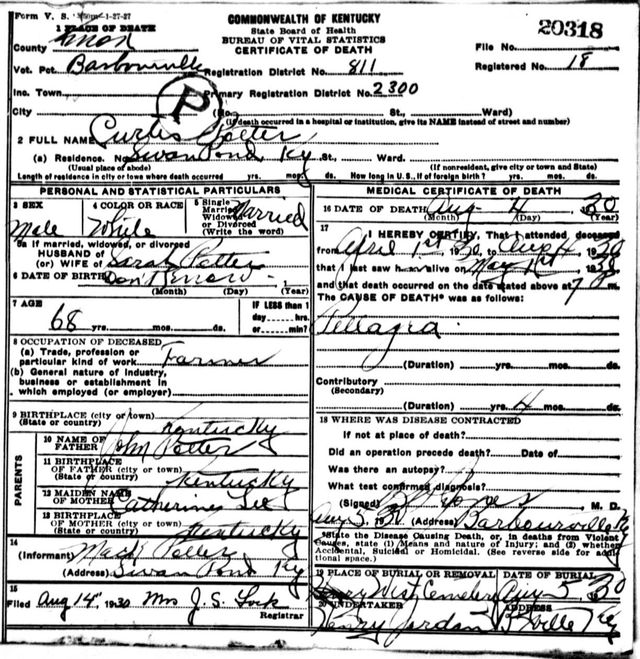 Form V. S. 1-27-27
COMMONWEALTH OF KENTUCKY
State Board of Health
BUREAU OF VITAL STATISTICS
CERTIFICATE OF DEATH
20318
File No.
Registered No. 18
1 PLACE OF DEATH
County Knox
Vot. Pct. Barbourville Registration District No. 811
Inc. Town Primary Registration District No. 2300
P
City (No. St., Ward)
(If death occurred in a hospital or institution, give its NAME instead of street and number)
2 FULL NAME Curtis Potter
(a) Residence. No. Swan Pond, Ky St., Ward.
(Usual place of abode) (If nonresident, give city or town and State)
Length of residence in city or town where death occurred yrs. mos. ds. How long in U. S., if of foreign birth? yrs. mos. ds.
PERSONAL AND STATISTICAL PARTICULARS
3 SEX Male
4 COLOR OR RACE White
5 Single Married Widowed or Divorced (Write the word) Married
5a If married, widowed, or divorced
HUSBAND of
(or) WIFE of Sarah Potter
6 DATE OF BIRTH Don't
(Month) (Day) (Year)
7 AGE
68 yrs. mos. ds.
IF LESS than 1
day hrs.
or min.?
8 OCCUPATION OF DECEASED
(a) Trade, profession or
particular kind of work Farmer
(b) General nature of industry,
business or establishment in
which employed (or employer)
9 BIRTHPLACE (city or town)
(State or country) Kentucky
PARENTS
10 NAME OF
FATHER John Potter
11 BIRTHPLACE
OF FATHER (city or town)
(State or country) Kentucky
12 MAIDEN NAME
OF MOTHER Catherine Lee
13 BIRTHPLACE
OF MOTHER (city or town)
(State or country) Kentucky
14
(Informant) Potter
(Address) Swan Pond Ky
15
Filed Aug 14" 1930 Mrs J. S. Lock
Registrar
MEDICAL CERTIFICATE OF DEATH
16 DATE OF DEATH Aug 4 30
(Month) (Day) (Year)
17
I HEREBY CERTIFY, That I attended deceased
from April 1st 30, to Aug 4, 1930
that I last saw him alive on
and that death occurred on the date stated above at 7
The CAUSE OF DEATH* was as follows:
Pellagra
(Duration) yrs. mos. ds.
Contributory
(Secondary)
(Duration) yrs. 4 mos. ds.
18 WHERE WAS DISEASE CONTRACTED
If not at place of death?
Did an operation precede death? Date of
Was there an autopsy?
What test confirmed diagnosis?
(Signed) M. D.
Aug 5, 1930 (Address) Barbourville Ky
*State the Disease Causing Death, or, in deaths from Violent
Causes, state (1) Means and nature of Injury; and (2) whether
Accidental, Suicidal or Homicidal. (See reverse side for addi-
tional space.)
19 PLACE OF BURIAL OR REMOVAL West Cemetery
DATE OF BURIAL Aug 5 30
20 UNDERTAKER Henry Jordan
ADDRESS B.ville Ky